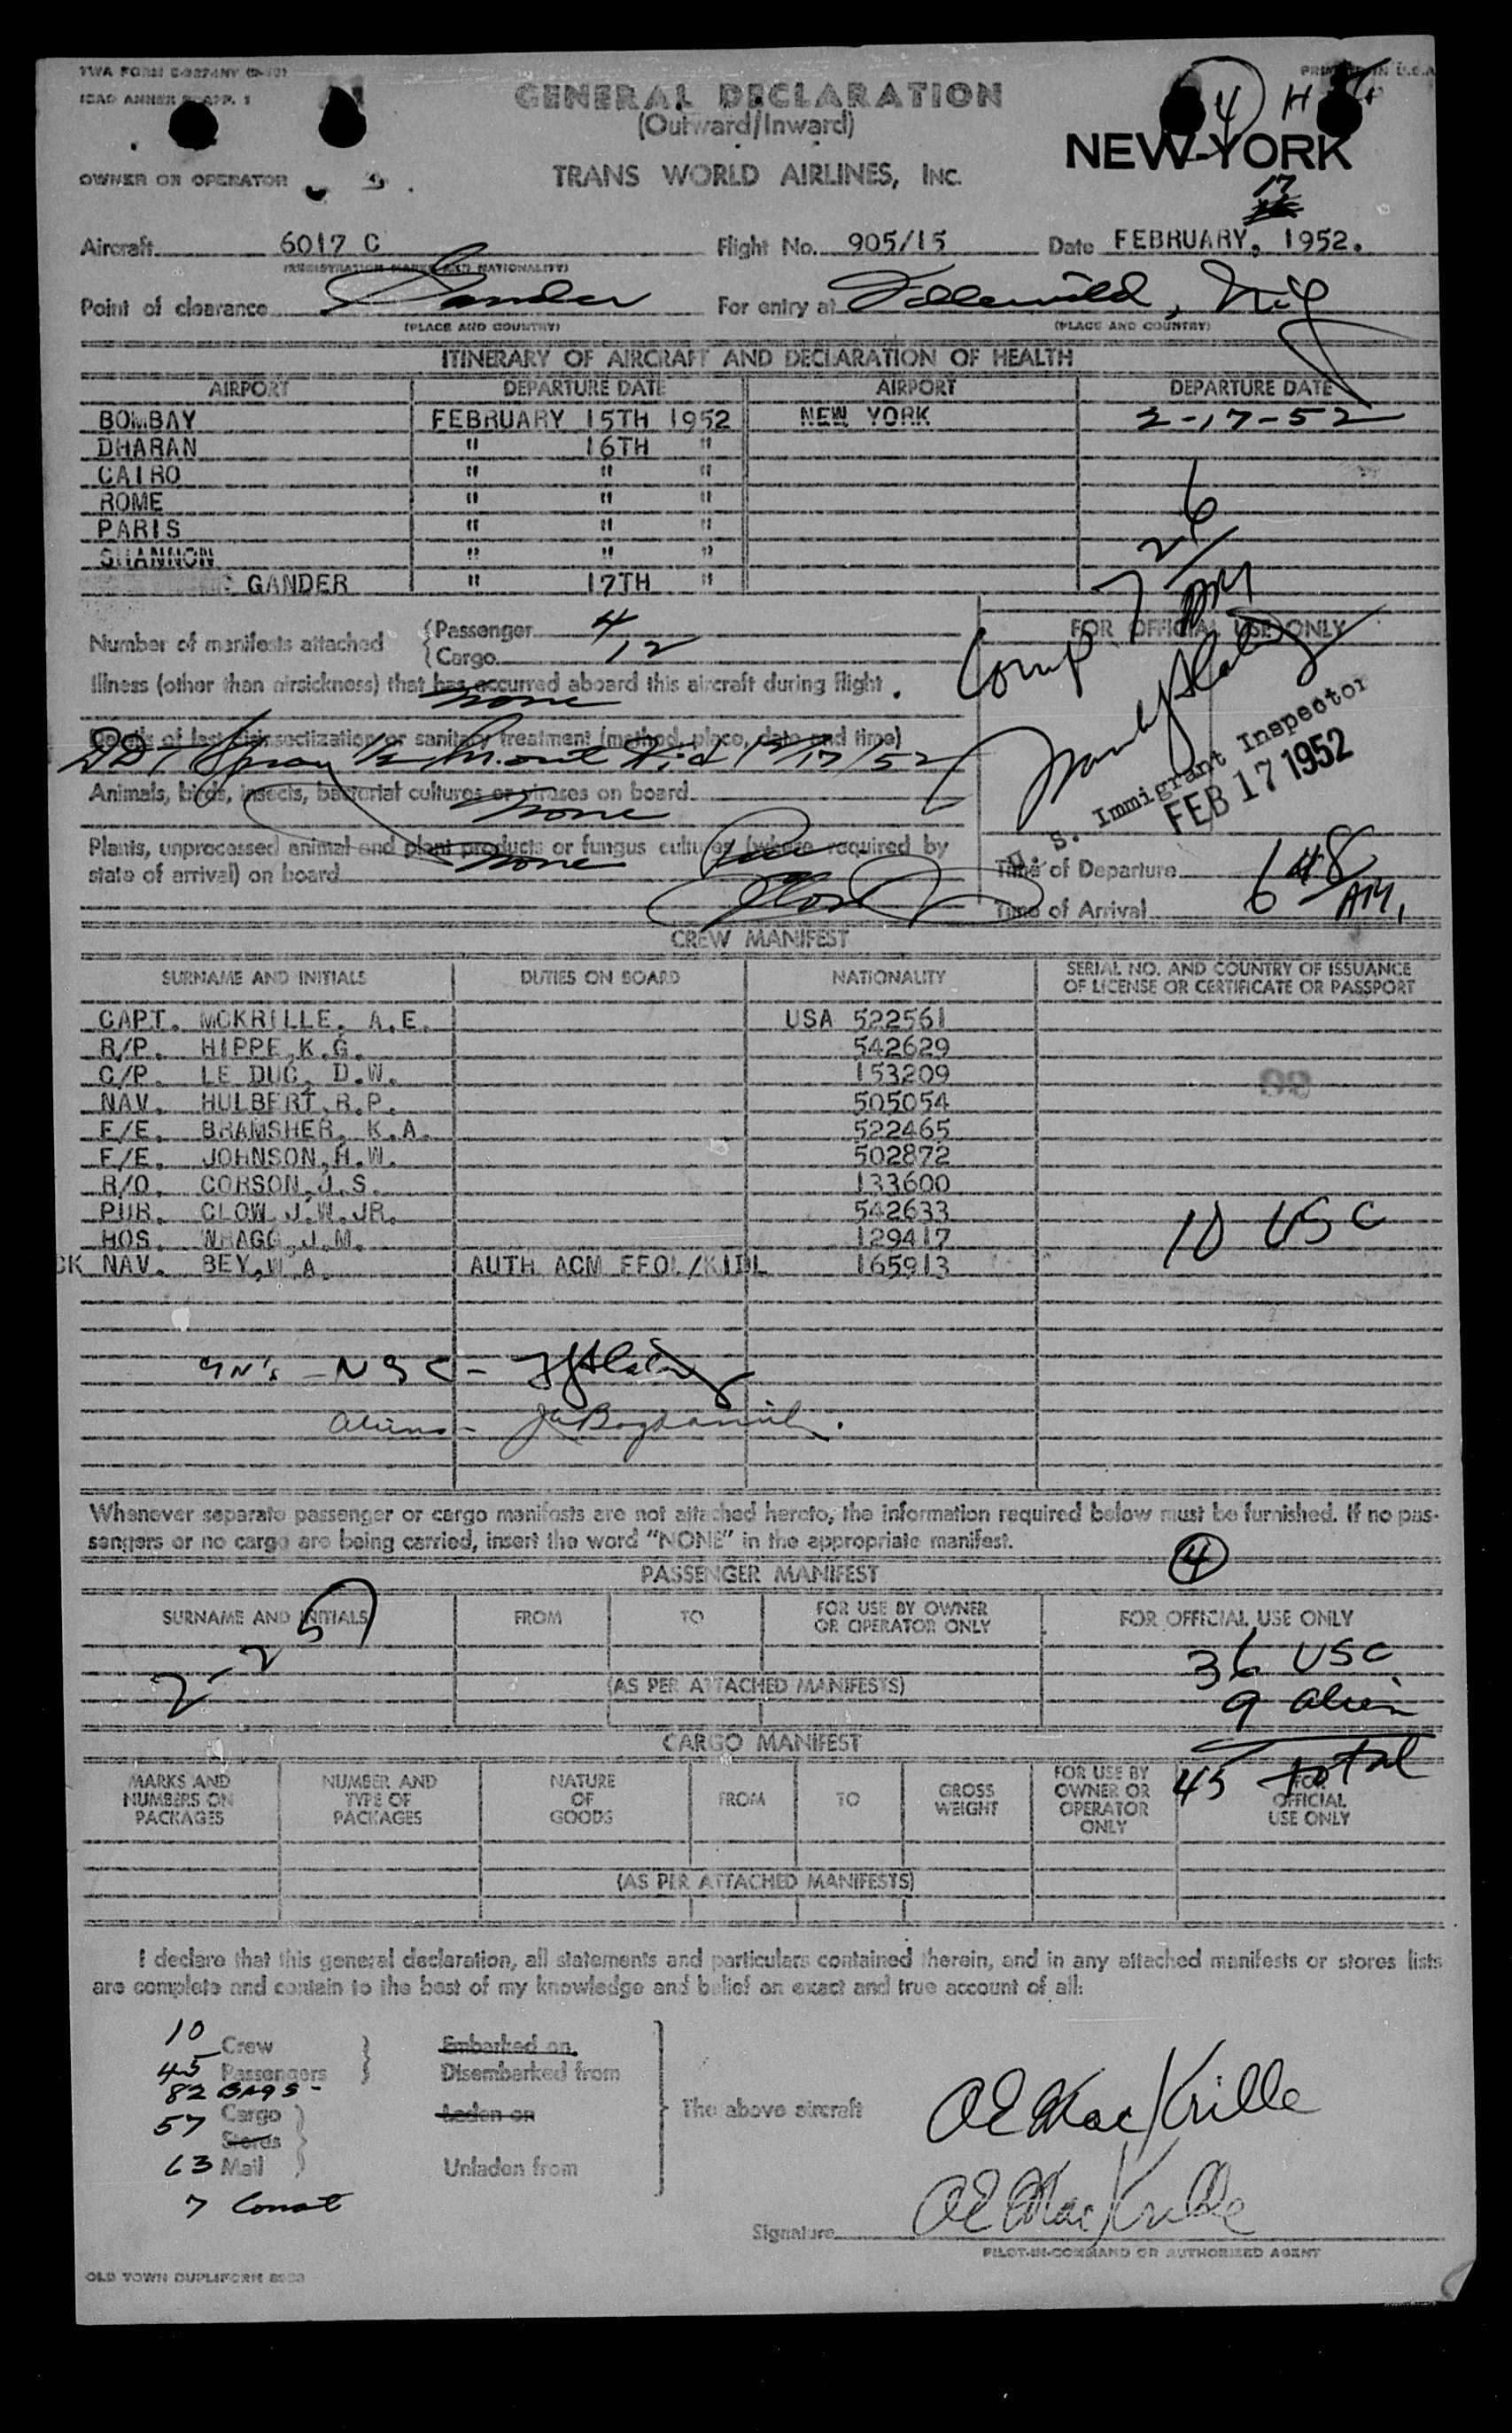 TWA FORM
PRINTED IN U.S.A.
ICAO ANNEX 9 APP. 1
4 H
GENERAL DECLARATION
(Outward/Inward)
NEW YORK
OWNER OR OPERATOR
TRANS WORLD AIRLINES, INC.
17
Aircraft 6017 C Flight No. 905/15 Date FEBRUARY, 1952.
(REGISTRATION MARKS AND NATIONALITY)
Point of clearance Gander For entry at Idlewild, N.Y.
(PLACE AND COUNTRY) (PLACE AND COUNTRY)
ITINERARY OF AIRCRAFT AND DECLARATION OF HEALTH
AIRPORT DEPARTURE DATE AIRPORT DEPARTURE DATE
BOMBAY FEBRUARY 15TH 1952 NEW YORK 2-17-52
DHARAN " 16TH "
CAIRO " " "
ROME " " "
PARIS " " "
SHANNON " " "
GANDER " 17TH "
Number of manifests attached {Passenger 4
{Cargo 12
FOR OFFICIAL USE ONLY
Comp 7 26 AM
Illness (other than airsickness) that has occurred aboard this aircraft during flight.
none
Details of last disinsectization or sanitary treatment (method, place, date and time)
DDT Spray
U. S. Immigrant Inspector
FEB 17 1952
Animals, birds, insects, bacterial cultures or viruses on board
none
Plants, unprocessed animal and plant products or fungus cultures (where required by
state of arrival) on board none
Time of Departure
Time of Arrival 6 48 AM.
CREW MANIFEST
SURNAME AND INITIALS DUTIES ON BOARD NATIONALITY SERIAL NO. AND COUNTRY OF ISSUANCE
OF LICENSE OR CERTIFICATE OR PASSPORT
CAPT. MCKRILLE, A.E. USA 522561
R/P. HIPPE,K.G. 542629
C/P. LE DUC, D.W. 153209
NAV. HULBERT,R.P. 505054
F/E. BRAMSHER, K.A. 522465
F/E. JOHNSON,H.W. 502872
R/O. CORSON,J.S. 133600
PUR. CLOW,J.W.JR. 542633
HOS. WRAGG,J.M. 129417
10 USC
CK NAV. BEY,W.A. AUTH ACM FFOL/KIDL 165913
USC -
Aliens -
Whenever separate passenger or cargo manifests are not attached hereto, the information required below must be furnished. If no pas-
sengers or no cargo are being carried, insert the word "NONE" in the appropriate manifest.
4
PASSENGER MANIFEST
SURNAME AND INITIALS FROM TO FOR USE BY OWNER
OR OPERATOR ONLY FOR OFFICIAL USE ONLY
36 USC
(AS PER ATTACHED MANIFESTS)
9 alien
45 total
CARGO MANIFEST
MARKS AND
NUMBERS ON
PACKAGES NUMBER AND
TYPE OF
PACKAGES NATURE
OF
GOODS FROM TO GROSS
WEIGHT FOR USE BY
OWNER OR
OPERATOR
ONLY FOR
OFFICIAL
USE ONLY
(AS PER ATTACHED MANIFESTS)
I declare that this general declaration, all statements and particulars contained therein, and in any attached manifests or stores lists
are complete and contain to the best of my knowledge and belief an exact and true account of all:
10 Crew Embarked on
45 Passengers Disembarked from
82 BAGS-
57 Cargo Laden on The above aircraft AE MacKrille
Stores
63 Mail Unladen from
7 Comat
Signature AE MacKrille
PILOT-IN-COMMAND OR AUTHORIZED AGENT
OLD TOWN DUPLIFORM